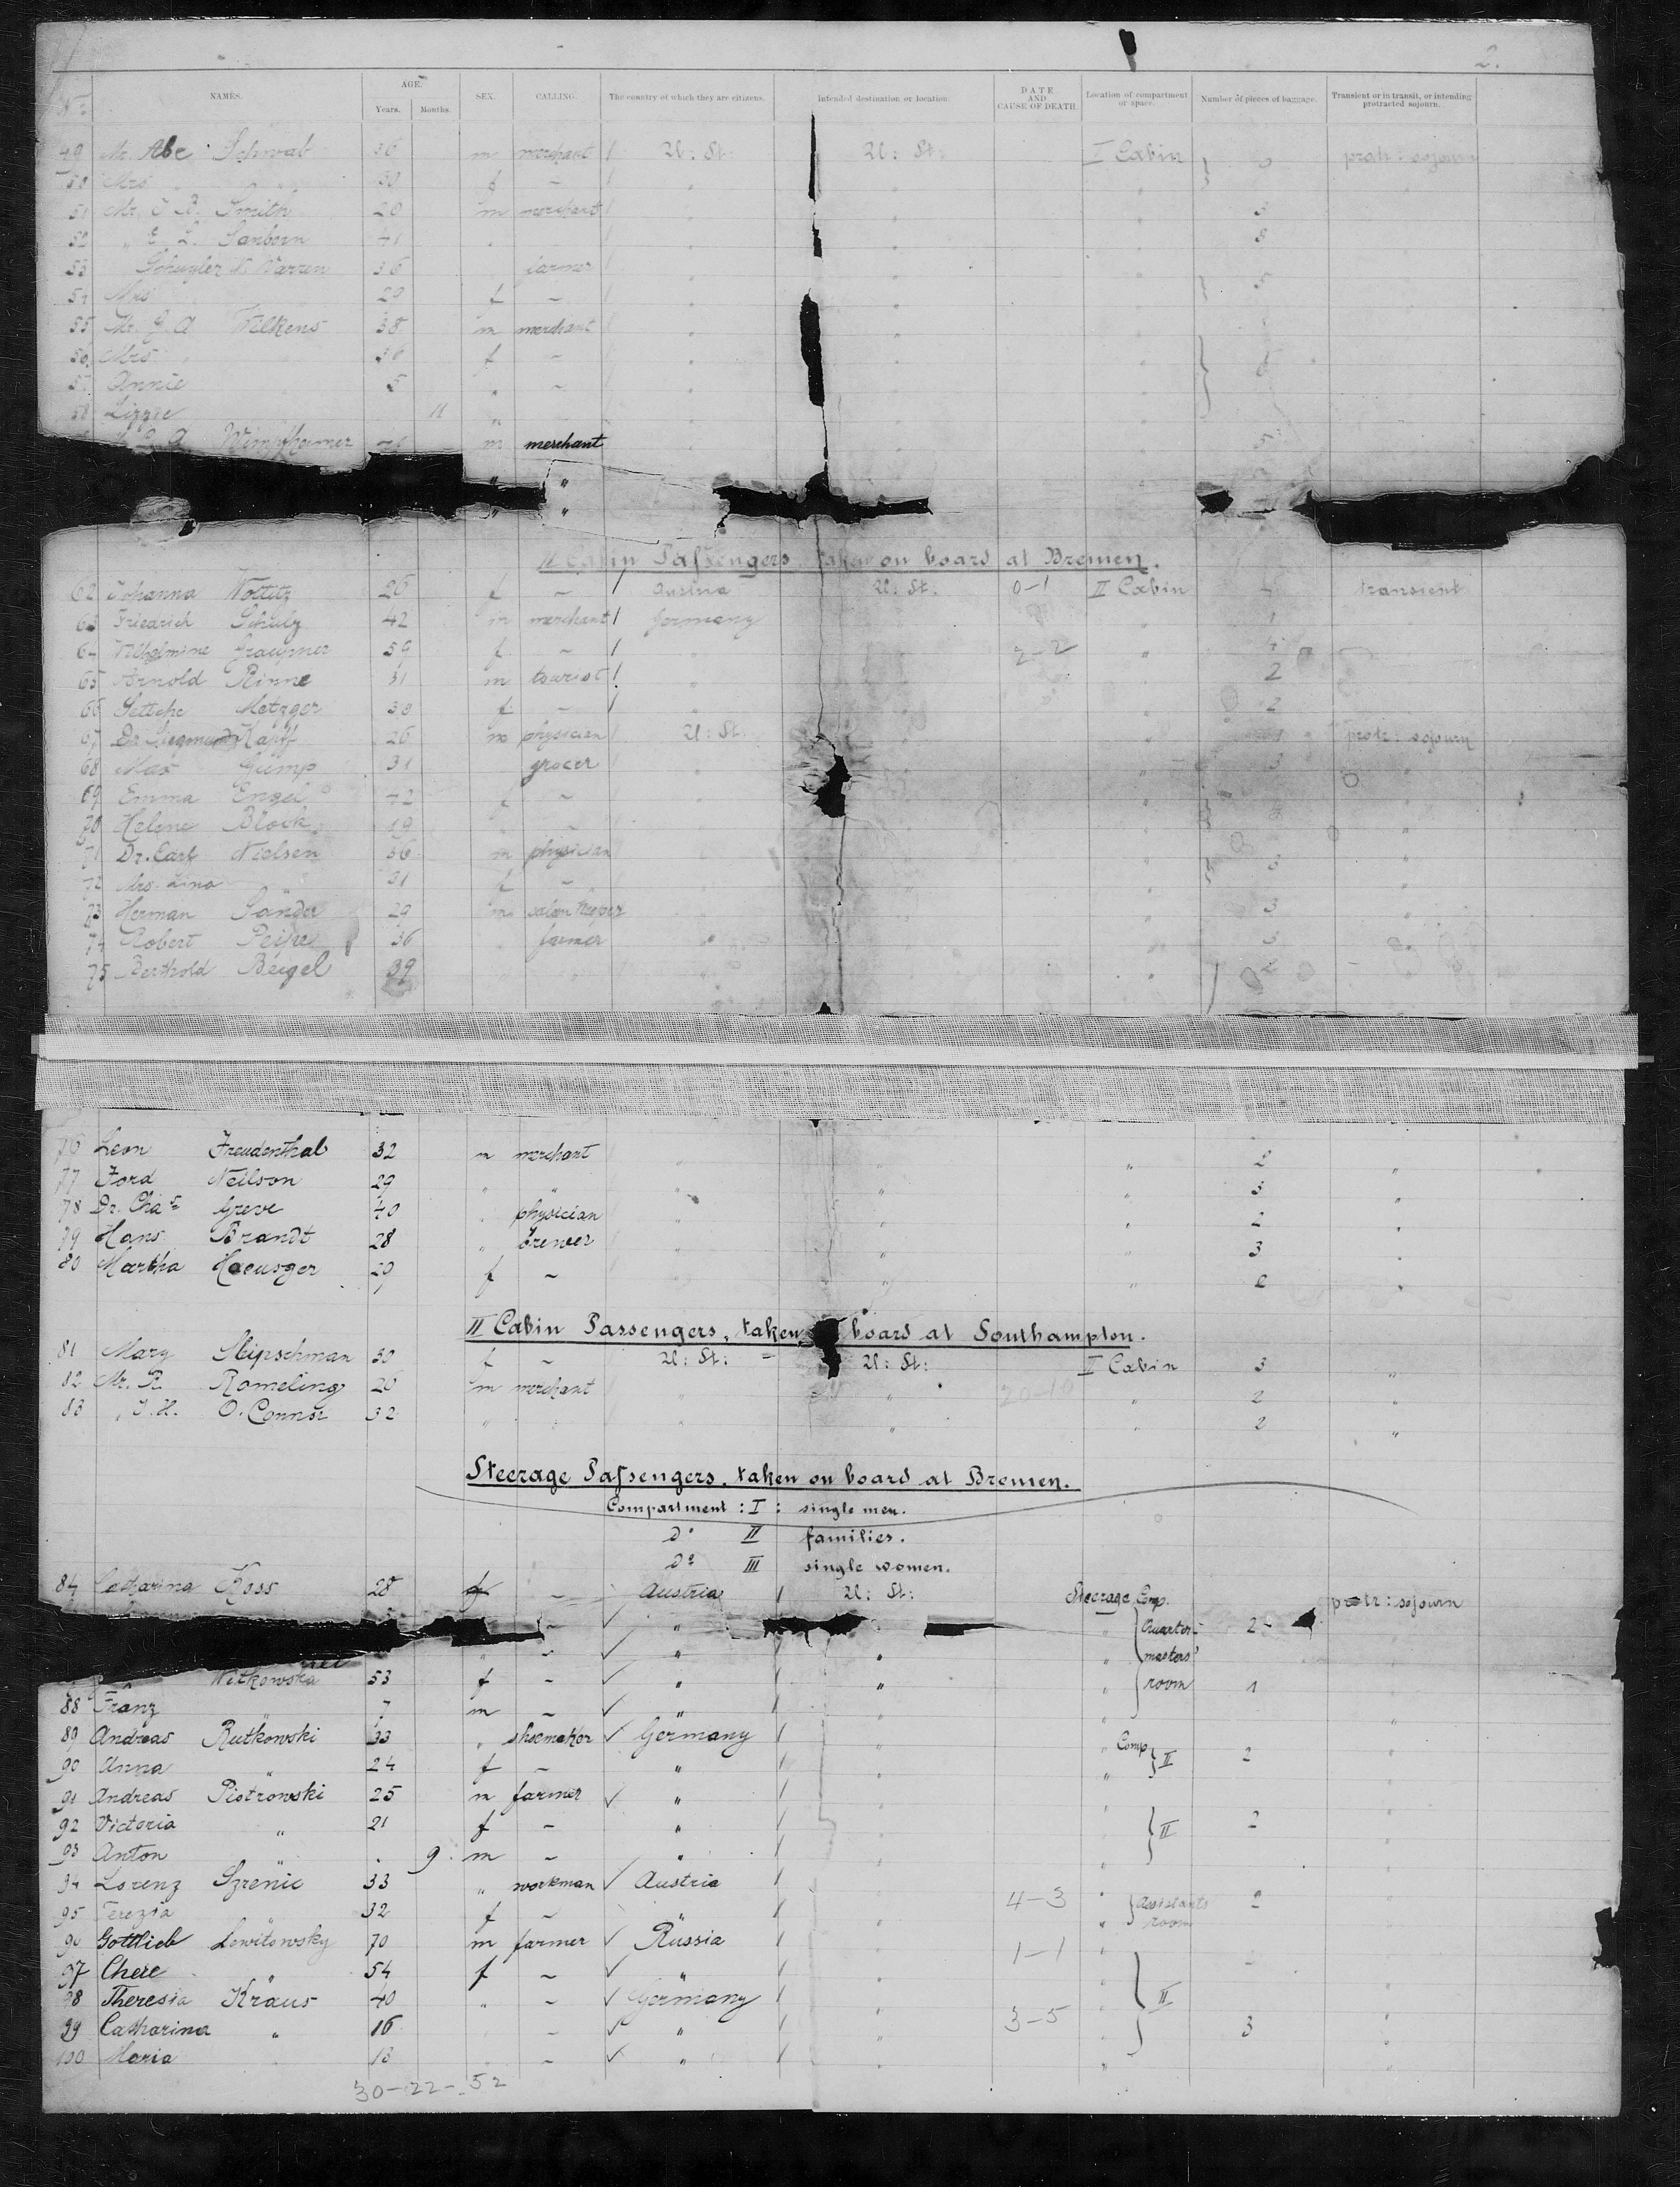 2.
No. NAMES. AGE. Years. Months. SEX. CALLING. The country of which they are citizens. Intended destination or location. DATE AND CAUSE OF DEATH. Location of compartment or space. Number of pieces of baggage. Transient or in transit, or intending protracted sojourn.
49 Mr. Abe Schwab 36 m merchant / U: St: U: St: I Cabin protr: sojourn
50 Mrs " 30 f - / " " " "
51 Mr. J. B. Smith 20 m merchant / " " " 3 "
52 " E. L. Sanborn 41 " " " " 3
53 Schuyler N. Warren 36 farmer / " " " 5
54 Mrs 29 f - / " " "
55 Mr. G. A. Wilkens 38 m merchant " " "
56 Mrs " 36 f - " " " 6
57 Annie 5 " - " " "
58 Lizzie 11 " " " "
Wimpfheimer m merchant " " " 5
" "
" "
II Cabin Passengers taken on board at Bremen.
62 Johanna Nottitz 26 f - / Austria U: St: 0-1 II Cabin transient
63 Friedrich Schulz 42 m merchant / Germany " " 1
64 Wilhelmine Graupner 59 f - / " " 2-2 " 4
65 Arnold Rinne 31 m tourist / " " " 2
66 Metzger 38 f - / " " " 2
67 Dr. Siegmund Kapff 26 m physician / U: St. " " 1 protr: sojourn
68 Max Gump 31 grocer " " " 3 "
69 Emma Engel 42 f - " " " "
70 Helene Block 19 - " " " "
71 Dr. Carl Nielsen 36 m physician " " " 3 "
72 Mrs. Lina 31 f - " " " "
73 Herman Sander 29 m saloon keeper " " " 3 "
74 Robert Peipe 36 " farmer " " " 3
75 Berthold Beigel 39 " " " " " 2
76 Leon Freudenthal 32 m merchant " " " 2 "
77 Ford Neilson 29 " " " " " 3 "
78 Dr. Chas Greve 40 " physician " " " 2 "
79 Hans Brandt 28 " brewer " " " 3 "
80 Martha Haeusger 29 f - " " " 2 "
II Cabin Passengers, taken board at Southampton.
81 Mary 30 f - U: St: - U: St: II Cabin 3 "
82 Mr. R. Romeling 20 m merchant " " 20-10 " 2 "
83 " J. H. O. Connor 32 " " " " " 2 "
Steerage Passengers, taken on board at Bremen.
Compartment : I : single men.
Do II families.
Do III single women.
84 Catharina Koss 28 f - Austria / U: St: Steerage Comp. protr: sojourn
- ✓ " " Quarter- 2
" - ✓ " " " masters'
Witkowska 53 f - ✓ " / " " room 1
88 Franz " 7 m - ✓ " / " "
89 Andreas Rutkowski 33 " shoemaker ✓ Germany / " " Comp. II 2 "
90 Anna " 24 f - " / " "
91 Andreas Piotrowski 25 m farmer ✓ " / " " "
92 Victoria " 21 f - " / " " II 2
93 Anton " 9 m - " / " " "
94 Lorenz Szrenic 33 " workman ✓ Austria / " 4-3 " Assistants 2 "
95 Terezia " 32 f - " / " " room
96 Gottlieb Lewitowsky 70 m farmer ✓ Russia / " 1-1 "
97 Chere " 54 f - ✓ " / " "
98 Theresia Kraus 40 " - ✓ Germany / " 3-5 " II "
99 Catharina " 16 - ✓ " / " " 3 "
100 Maria 18 - ✓ " / " " "
30-22-52